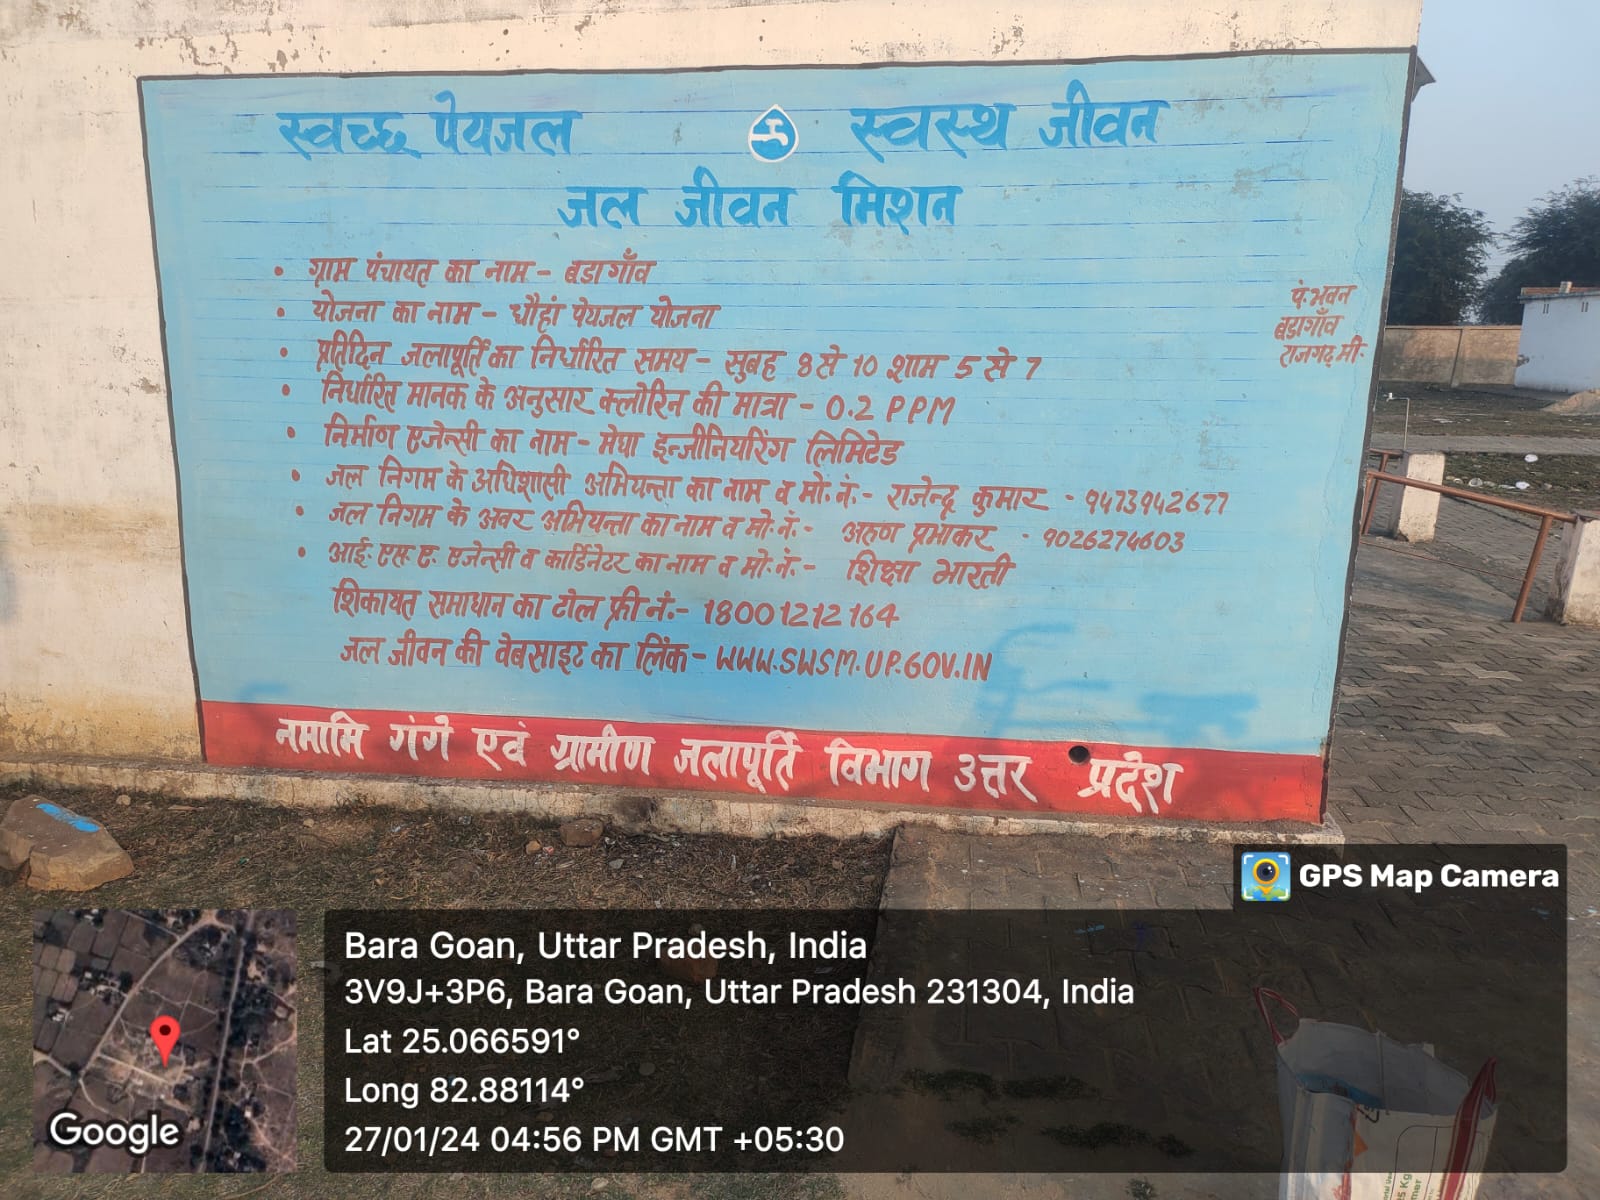 स्वच्छ पेयजल स्वस्थ जीवन
जल जीवन मिशन
• ग्राम पंचायत का नाम - बडागाँव
• योजना का नाम - धौहां पेयजल योजना
• प्रतिदिन जलापूर्ति का निर्धारित समय - सुबह 8 से 10 शाम 5 से 7
• निर्धारित मानक के अनुसार क्लोरिन की मात्रा - 0.2 PPM
• निर्माण एजेन्सी का नाम - मेघा इन्जीनियरिंग लिमिटेड
• जल निगम के अधिशासी अभियन्ता का नाम व मो. नं. - राजेन्द्र कुमार - 9473942677
• जल निगम के अवर अभियन्ता का नाम व मो. नं. - अरुण प्रभाकर - 9026274603
• आई. एस. ए. एजेन्सी व कार्डिनेटर का नाम व मो. नं. - शिक्षा भारती
शिकायत समाधान का टोल फ्री नं. - 18001212164
जल जीवन की वेबसाइट का लिंक - WWW.SWSM.UP.GOV.IN
नमामि गंगे एवं ग्रामीण जलापूर्ति विभाग उत्तर प्रदेश
पं. भवन
बड़ागाँव
राजगढ़ मी.
GPS Map Camera
Bara Goan, Uttar Pradesh, India
3V9J+3P6, Bara Goan, Uttar Pradesh 231304, India
Lat 25.066591°
Long 82.88114°
27/01/24 04:56 PM GMT +05:30
Google